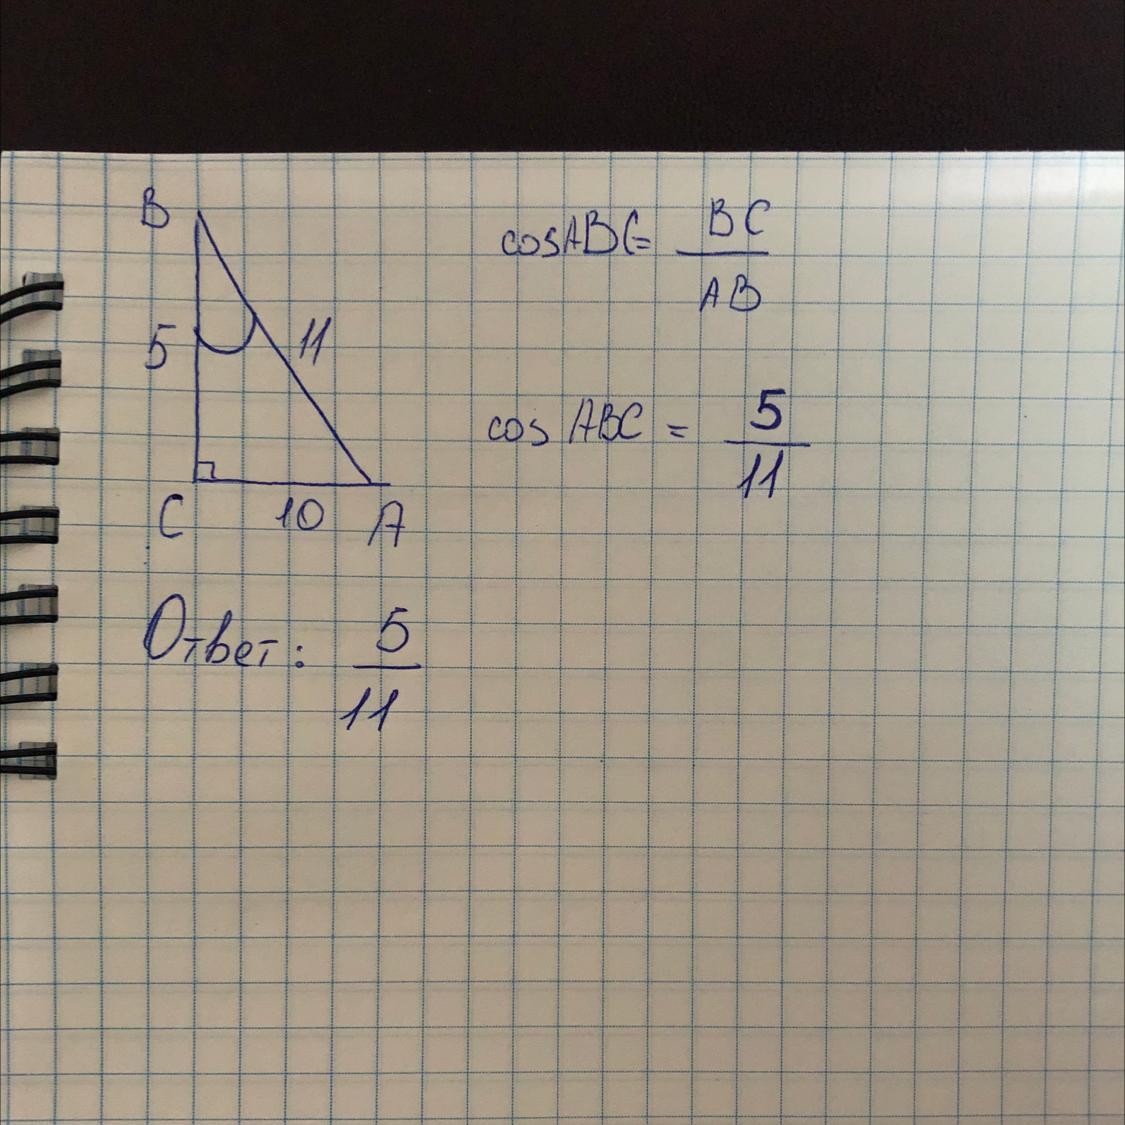 B
5
11
C
10
A
cosABC= BC
AB
cos ABC = 5
11
Ответ: 5
11